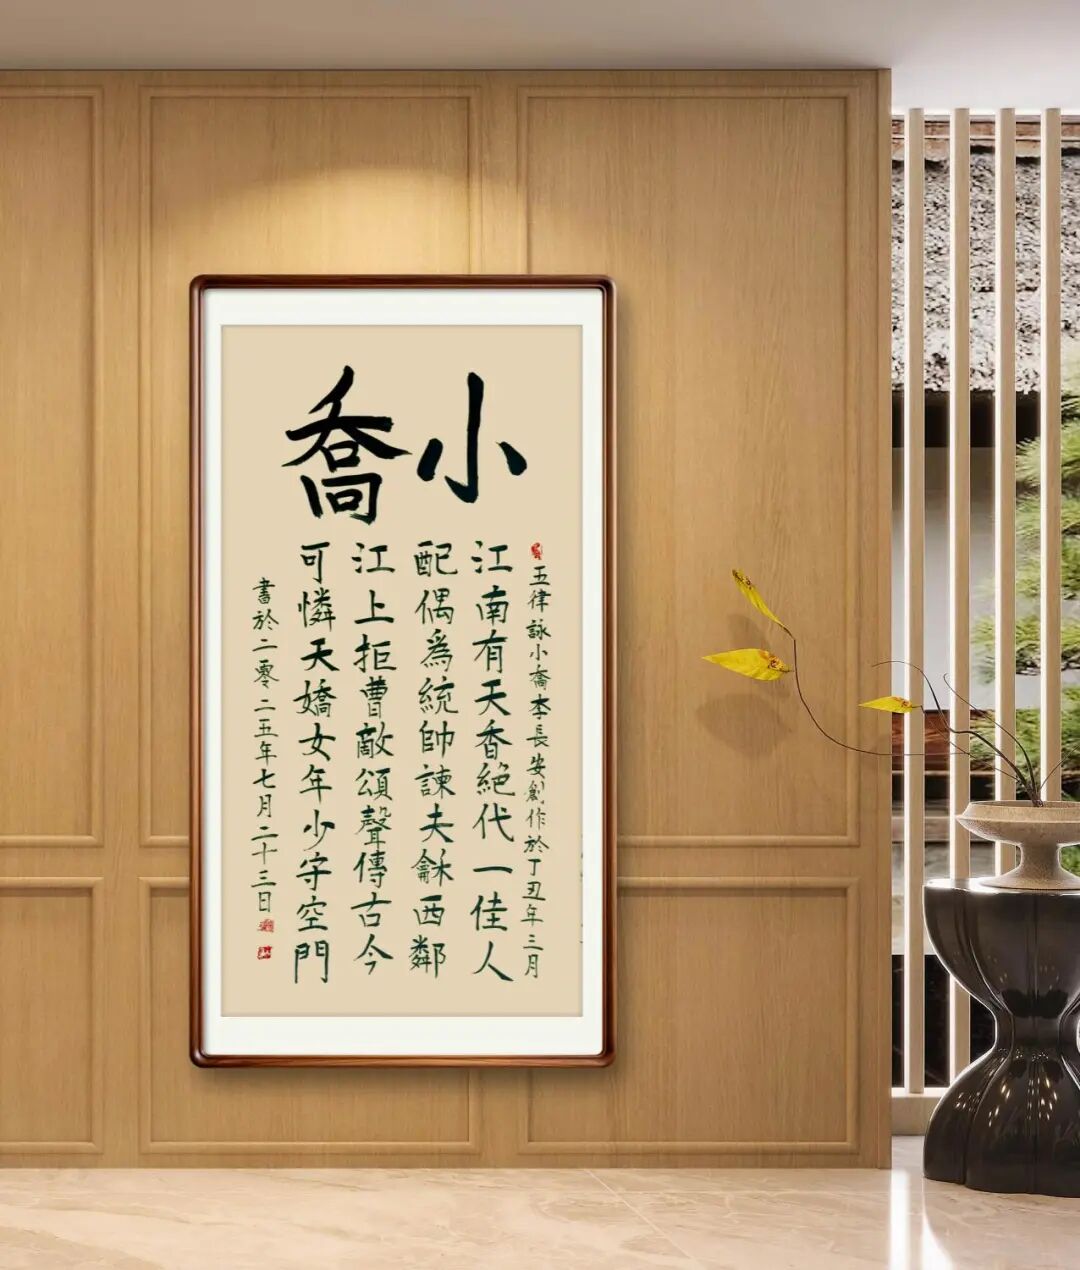 小喬
五律詠小喬李長安創作於丁丑年三月
江南有天香絶代一佳人
配偶爲統帥諫夫龢西鄰
江上拒曹敵頌聲傳古今
可憐天嬌女年少守空門
書於二零二五年七月二十三日